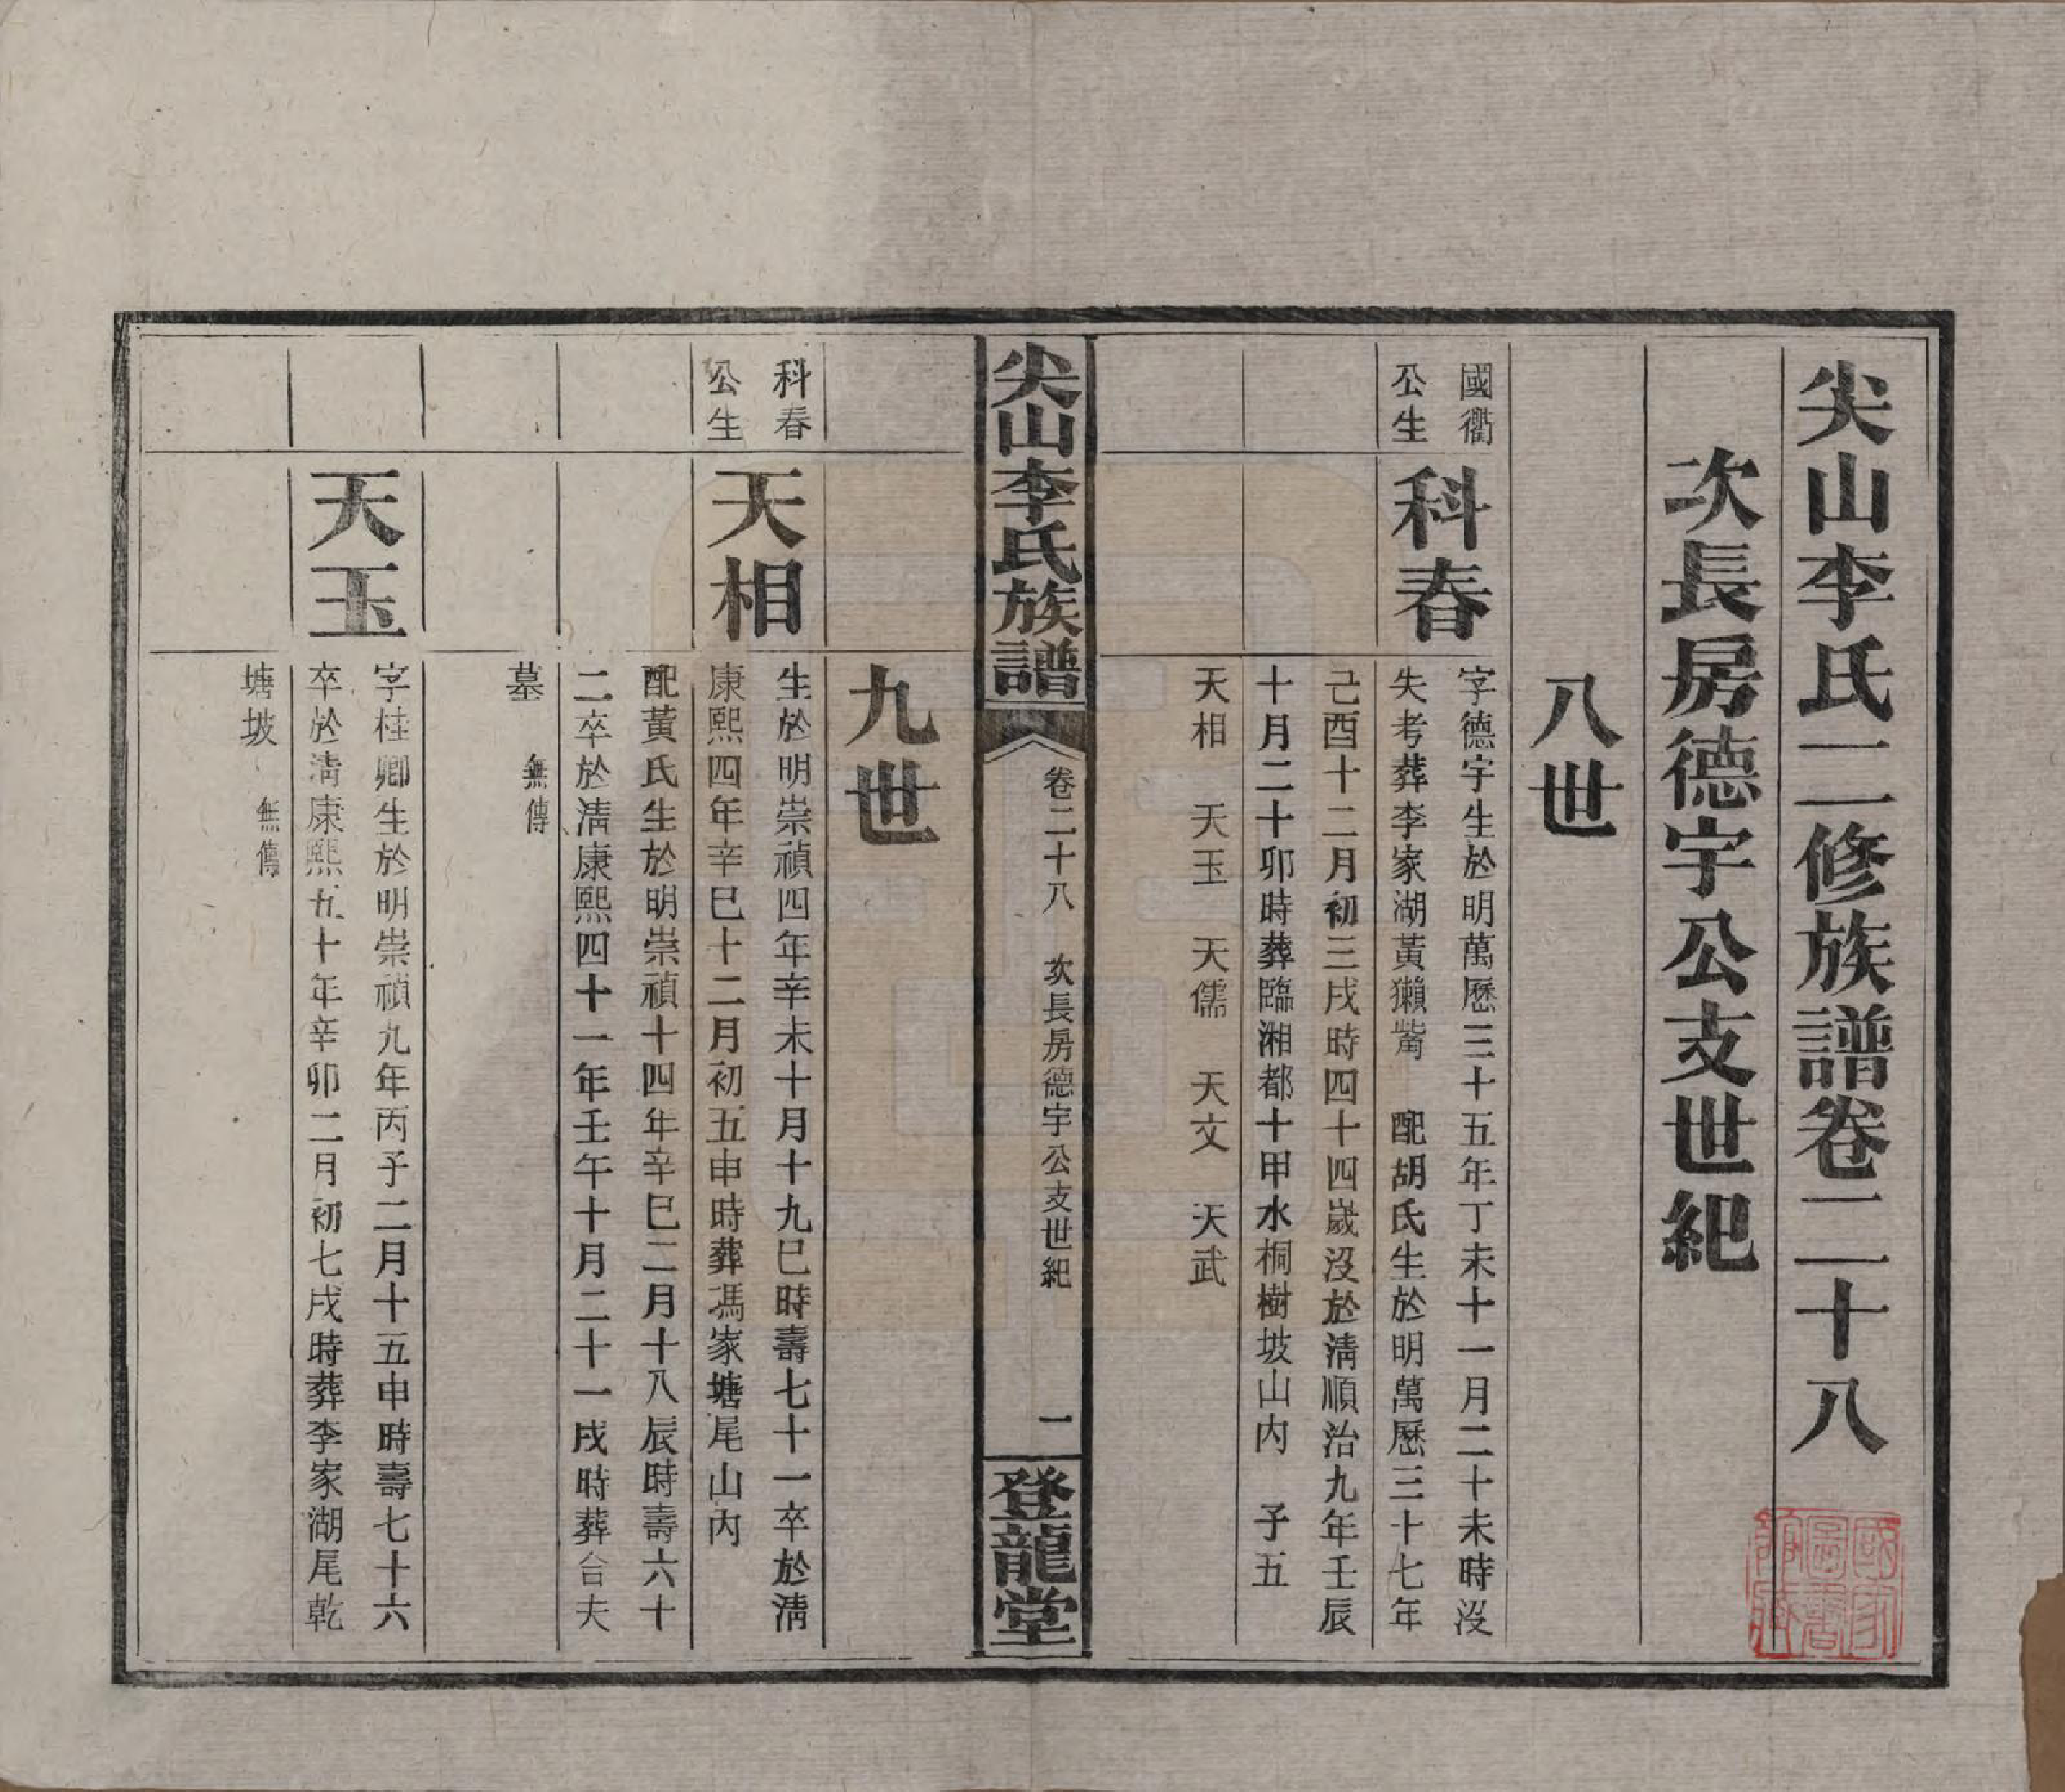 尖山李氏二修族譜卷二十八
次長房德宇公支世紀
八世
國衢
公生
科春
字德宇生於明萬歷三十五年丁未十一月二十未時沒
失考葬李家湖黃獺嘴 配胡氏生於明萬歷三十七年
己酉十二月初三戌時四十四歲沒於清順治九年壬辰
十月二十卯時葬臨湘都十甲水桐樹坡山內 子五
天相 天玉 天儒 天文 天武
尖山李氏族譜
卷二十八 次長房德宇公支世紀
一
登龍堂
九世
科春
公生
天相
生於明崇禎四年辛未十月十九巳時壽七十一卒於清
康熙四年辛巳十二月初五申時葬馮家塘尾山內
配黃氏生於明崇禎十四年辛巳二月十八辰時壽六十
二卒於清康熙四十一年壬午十月二十一戌時葬合夫
墓 無傳
天玉
字桂卿生於明崇禎九年丙子二月十五申時壽七十六
卒於清康熙五十年辛卯二月初七戌時葬李家湖尾乾
塘坡 無傳
國家
圖書
館藏